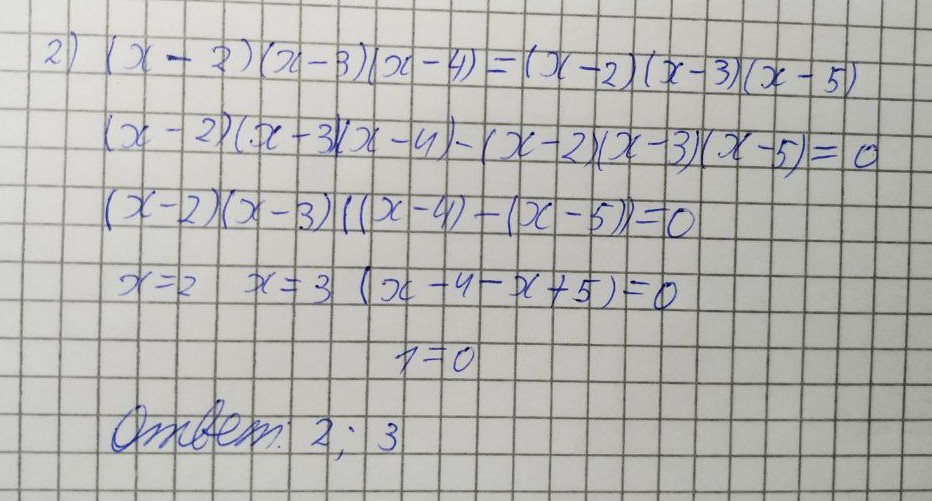 2) (x - 2)(x-3)(x-4)=(x-2)(x-3)(x-5)
(x-2)(x-3)(x-4)-(x-2)(x-3)(x-5)=0
(x-2)(x-3)((x-4)-(x-5))=0
x=2 x=3 (x-4-x+5)=0
1=0
Ответ: 2; 3